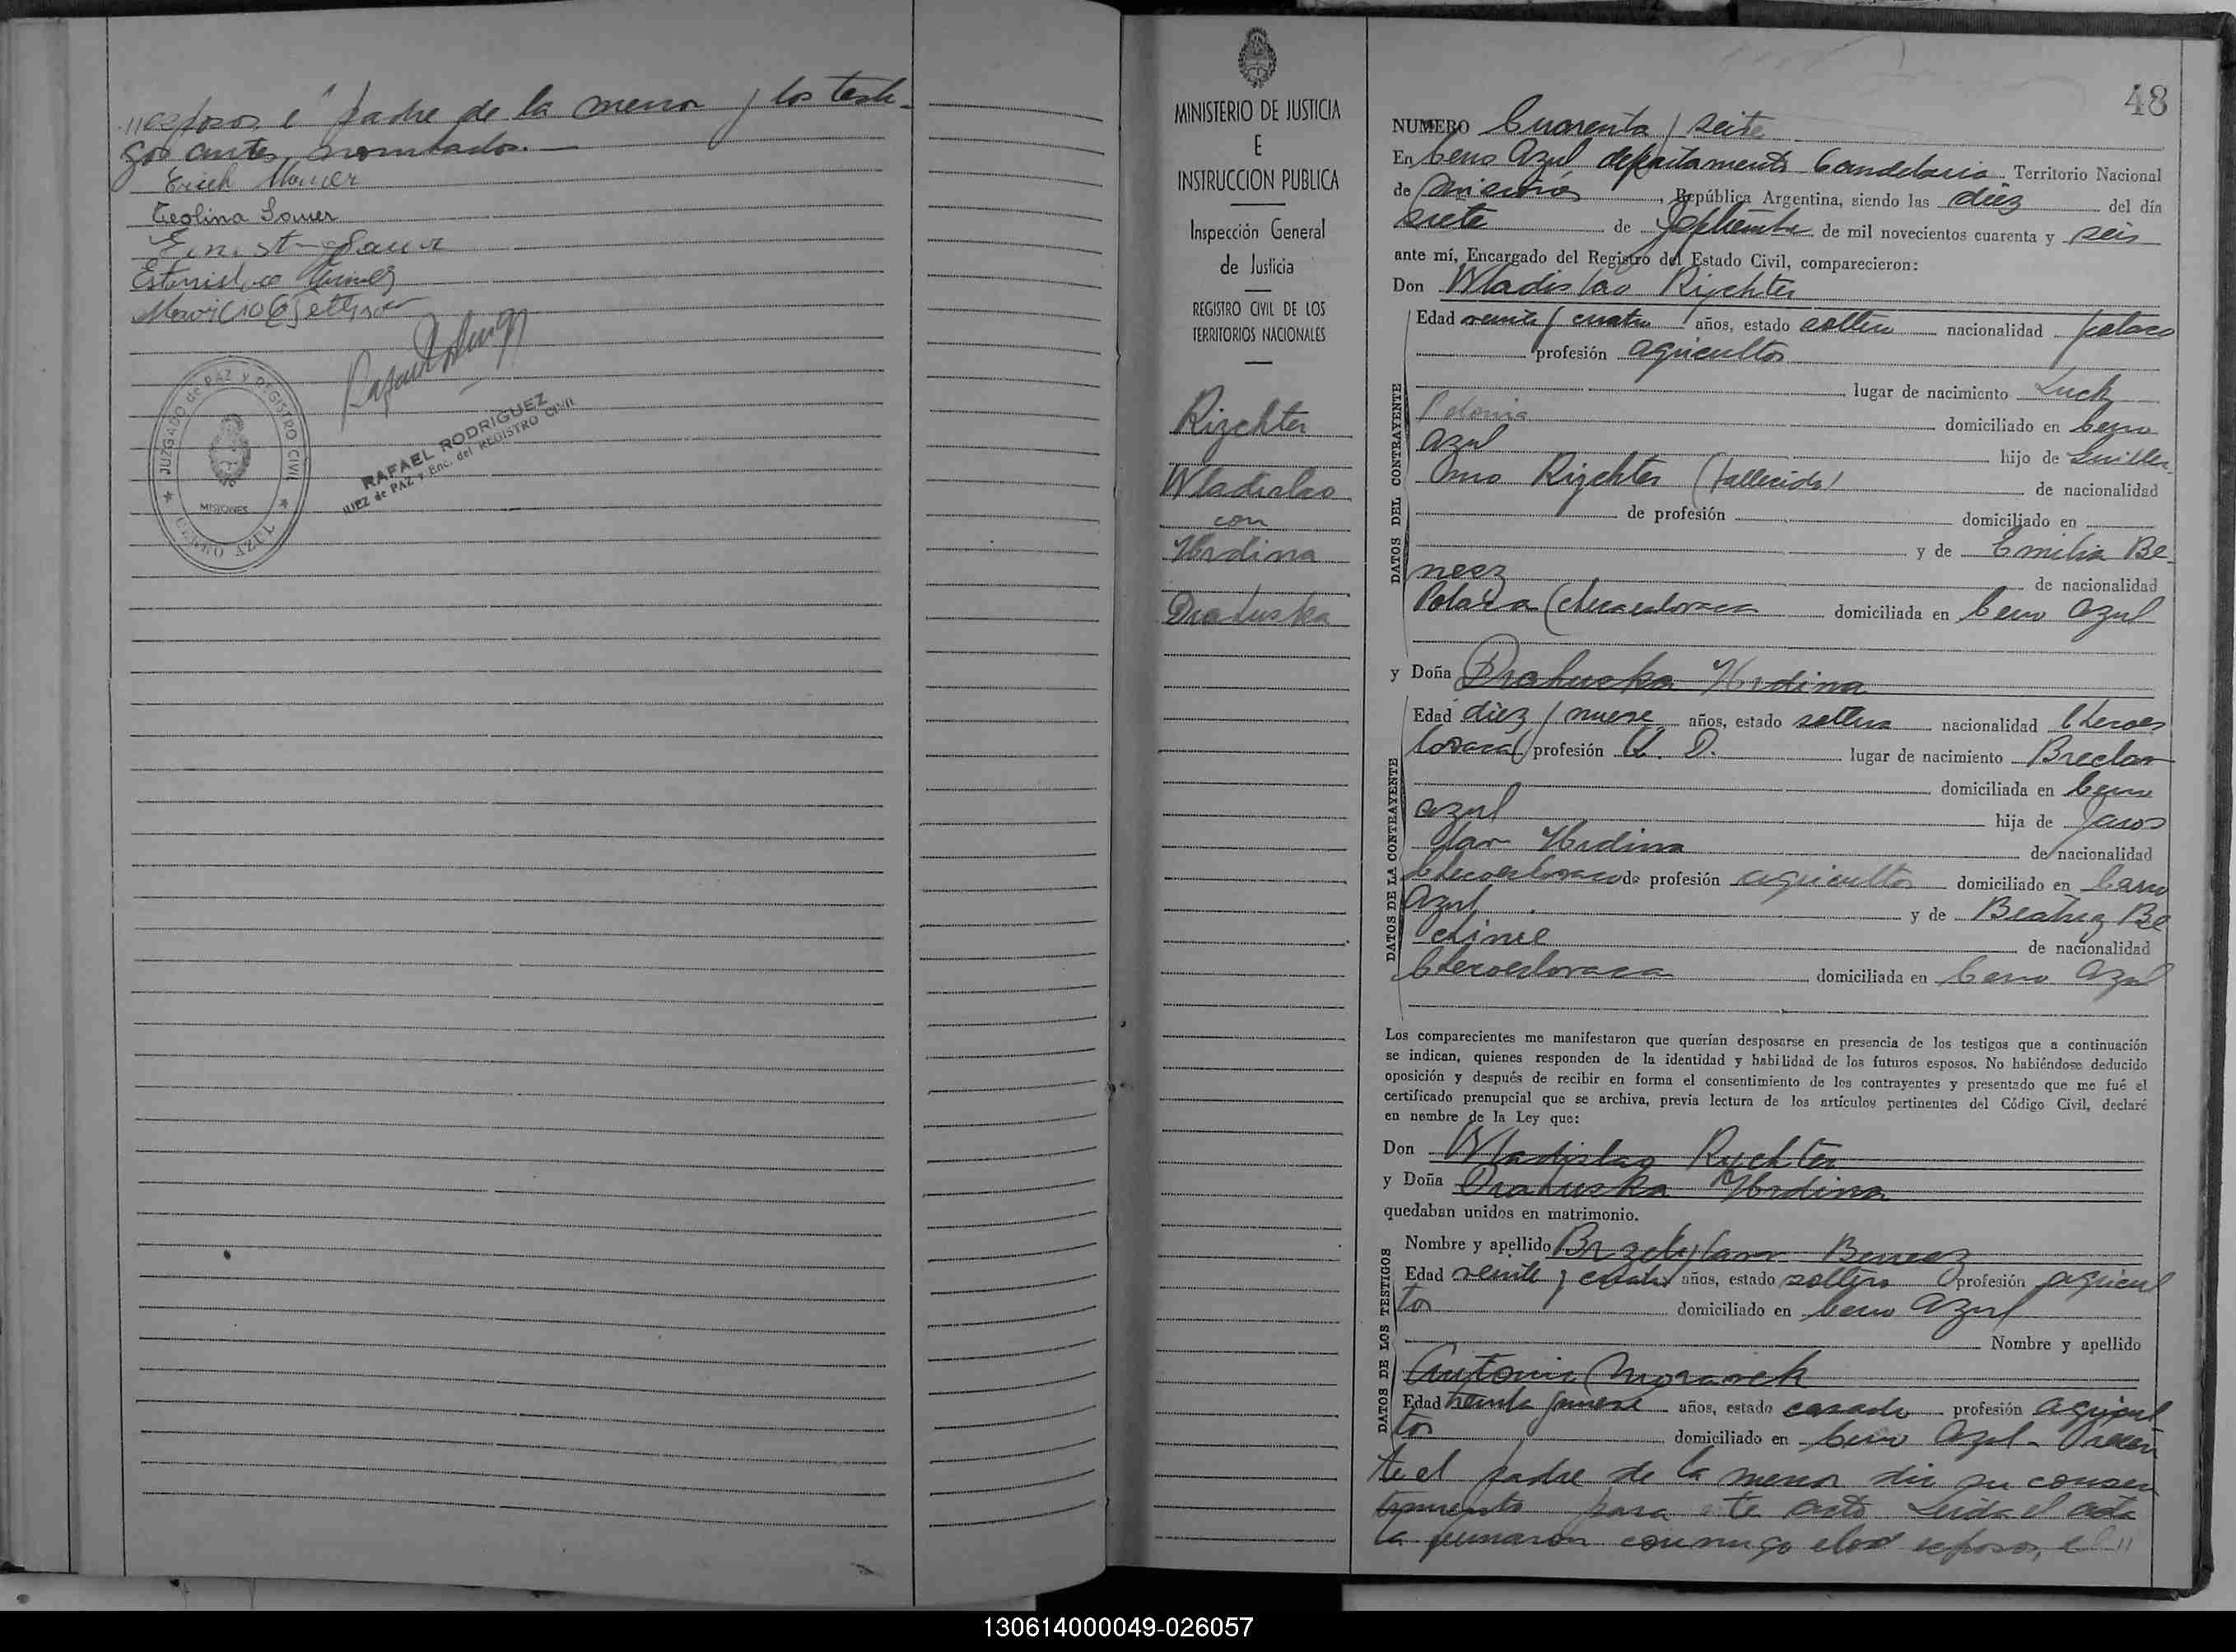 "esposos, el padre de la menor y los testi-
gos antes nombrados.—
Erich
Teolina Somer
Ernst Sauer
Estanislao
Mauricio
RAFAEL RODRIGUEZ
JUEZ de PAZ y Enc. del REGISTRO CIVIL
JUZGADO de PAZ Y REGISTRO CIVIL
MISIONES
CERRO AZUL
MINISTERIO DE JUSTICIA
E
INSTRUCCION PUBLICA
Inspección General
de Justicia
REGISTRO CIVIL DE LOS
TERRITORIOS NACIONALES
Rizchter
Wladislao
con
Hrdina
Drahuska
48
NUMERO Cuarenta y seite
En Cerro Azul departamento Candelaria Territorio Nacional
de Misiones, República Argentina, siendo las diez del día
siete de Septiembre de mil novecientos cuarenta y seis
ante mí, Encargado del Registro del Estado Civil, comparecieron:
Don Wladislao Rijchter
DATOS DEL CONTRAYENTE
Edad veinte y cuatro años, estado soltero nacionalidad polaco
profesión agricultor
lugar de nacimiento Luck
Polonia domiciliado en Cerro
Azul hijo de Guiller-
mo Rijchter (fallecido) de nacionalidad
de profesión domiciliado en
y de Emilia Be-
nesz de nacionalidad
domiciliada en Cerro Azul
y Doña Drahuska Hrdina
DATOS DE LA CONTRAYENTE
Edad diez y nueve años, estado soltera nacionalidad Checoes
lovaca profesión Q. D. lugar de nacimiento Breclav
domiciliada en Cerro
Azul hija de Jaros
lav Hrdina de nacionalidad
Checoeslovaco de profesión agricultor domiciliado en Cerro
Azul y de Beatriz Be
chinie de nacionalidad
Checoeslovaca domiciliada en Cerro Azul
Los comparecientes me manifestaron que querían desposarse en presencia de los testigos que a continuación
se indican, quienes responden de la identidad y habilidad de los futuros esposos. No habiéndose deducido
oposición y después de recibir en forma el consentimiento de los contrayentes y presentado que me fué el
certificado prenupcial que se archiva, previa lectura de los artículos pertinentes del Código Civil, declaré
en nombre de la Ley que:
Don Wladislao Rychter
y Doña Drahuska Hrdina
quedaban unidos en matrimonio.
DATOS DE LOS TESTIGOS
Nombre y apellido
Edad veinte y cuatro años, estado soltero profesión agricul
tor domiciliado en Cerro Azul
Nombre y apellido
Antonio Moravek
Edad treinta y nueve años, estado casado profesión agricul
tor domiciliado en Cerro Azul- Presen
te el padre de la menor dio su consen
timiento para este acto Leida el acta
la firmaron conmigo los esposos, el "
130614000049-026057